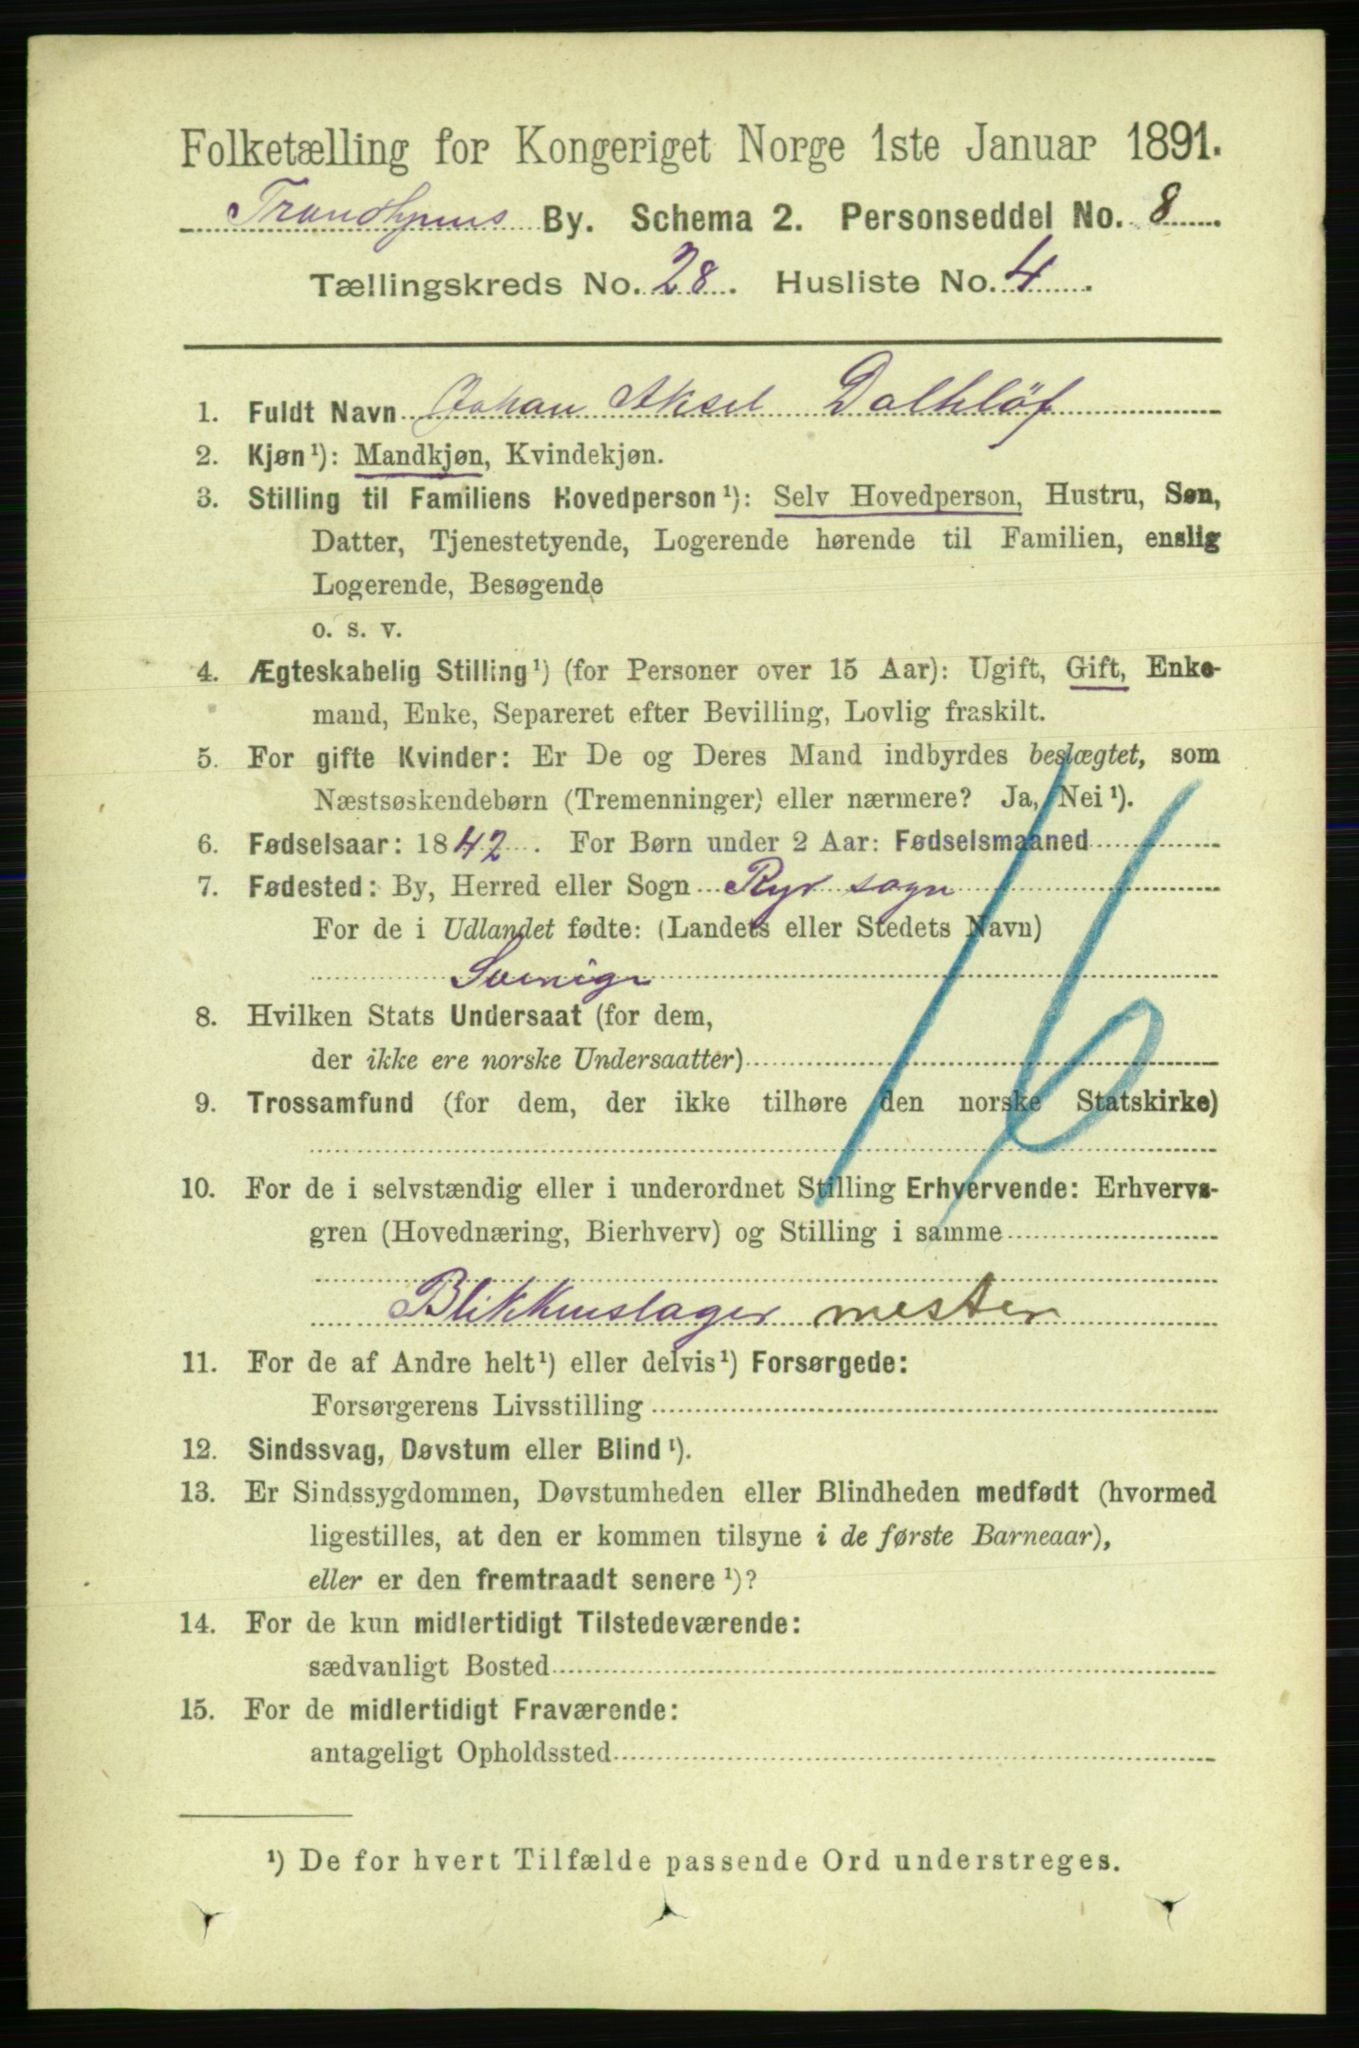 Folketælling for Kongeriget Norge 1ste Januar 1891.
Trondhjems By. Schema 2. Personseddel No. 8
Tællingskreds No. 28. Husliste No. 4.
1. Fuldt Navn Johan Aksel Dalhløf
2. Kjøn¹): Mandkjøn, Kvindekjøn.
3. Stilling til Familiens Hovedperson¹): Selv Hovedperson, Hustru, Søn,
Datter, Tjenestetyende, Logerende hørende til Familien, enslig
Logerende, Besøgende
o. s. v.
4. Ægteskabelig Stilling¹) (for Personer over 15 Aar): Ugift, Gift, Enke-
mand, Enke, Separeret efter Bevilling, Lovlig fraskilt.
5. For gifte Kvinder: Er De og Deres Mand indbyrdes beslægtet, som
Næstsøskendebørn (Tremenninger) eller nærmere? Ja, Nei¹).
6. Fødselsaar: 1842. For Børn under 2 Aar: Fødselsmaaned
7. Fødested: By, Herred eller Sogn Ryr sogn
For de i Udlandet fødte: (Landets eller Stedets Navn)
Sverige
8. Hvilken Stats Undersaat (for dem,
der ikke ere norske Undersaatter)
9. Trossamfund (for dem, der ikke tilhøre den norske Statskirke)
16
10. For de i selvstændig eller i underordnet Stilling Erhvervende: Erhvervs-
gren (Hovednæring, Bierhverv) og Stilling i samme
Blikkenslager mester
11. For de af Andre helt¹) eller delvis¹) Forsørgede:
Forsørgerens Livsstilling
12. Sindssvag, Døvstum eller Blind¹).
13. Er Sindssygdommen, Døvstumheden eller Blindheden medfødt (hvormed
ligestilles, at den er kommen tilsyne i de første Barneaar),
eller er den fremtraadt senere¹)?
14. For de kun midlertidigt Tilstedeværende:
sædvanligt Bosted
15. For de midlertidigt Fraværende:
antageligt Opholdssted
¹) De for hvert Tilfælde passende Ord understreges.